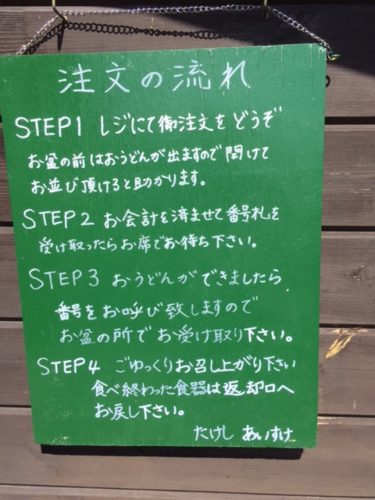 注文の流れ
STEP1 レジにて御注文をどうぞ
お盆の前はおうどんが出ますので開けて
お並び頂けると助かります。
STEP2 お会計を済ませて番号札を
受け取ったらお席でお待ち下さい。
STEP3 おうどんができましたら
番号をお呼び致しますので
お盆の所でお受け取り下さい。
STEP4 ごゆっくりお召し上がり下さい
食べ終わった食器は返却口へ
お戻し下さい。
たけし あいすけ